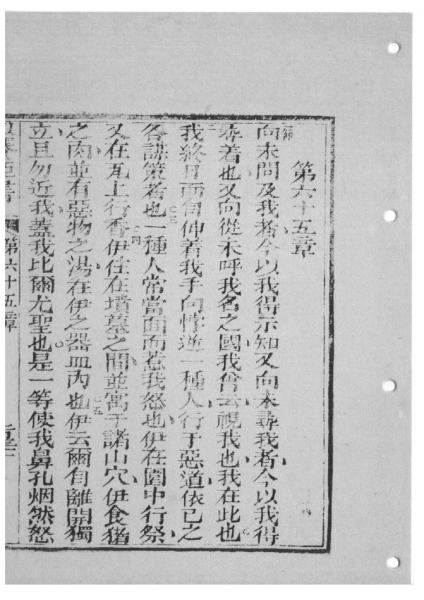 第六十五章
向未問及我者今以我得示知又向未尋我者今以我得
尋着也又向從未呼我名之國我曾云視我也我在此也
我終日而自伸着我手向悖逆一種人行于惡道依已之
各謀策者也一種人常當面而惹我怒也伊在園中行祭
又在瓦上行香伊住在墳墓之間並寓于諸山穴伊食猪
之肉並有惡物之湯在伊之器皿內也伊云爾自離開獨
立且勿近我蓋我比爾尤聖也是一等使我鼻孔烟然怒
第六十五章